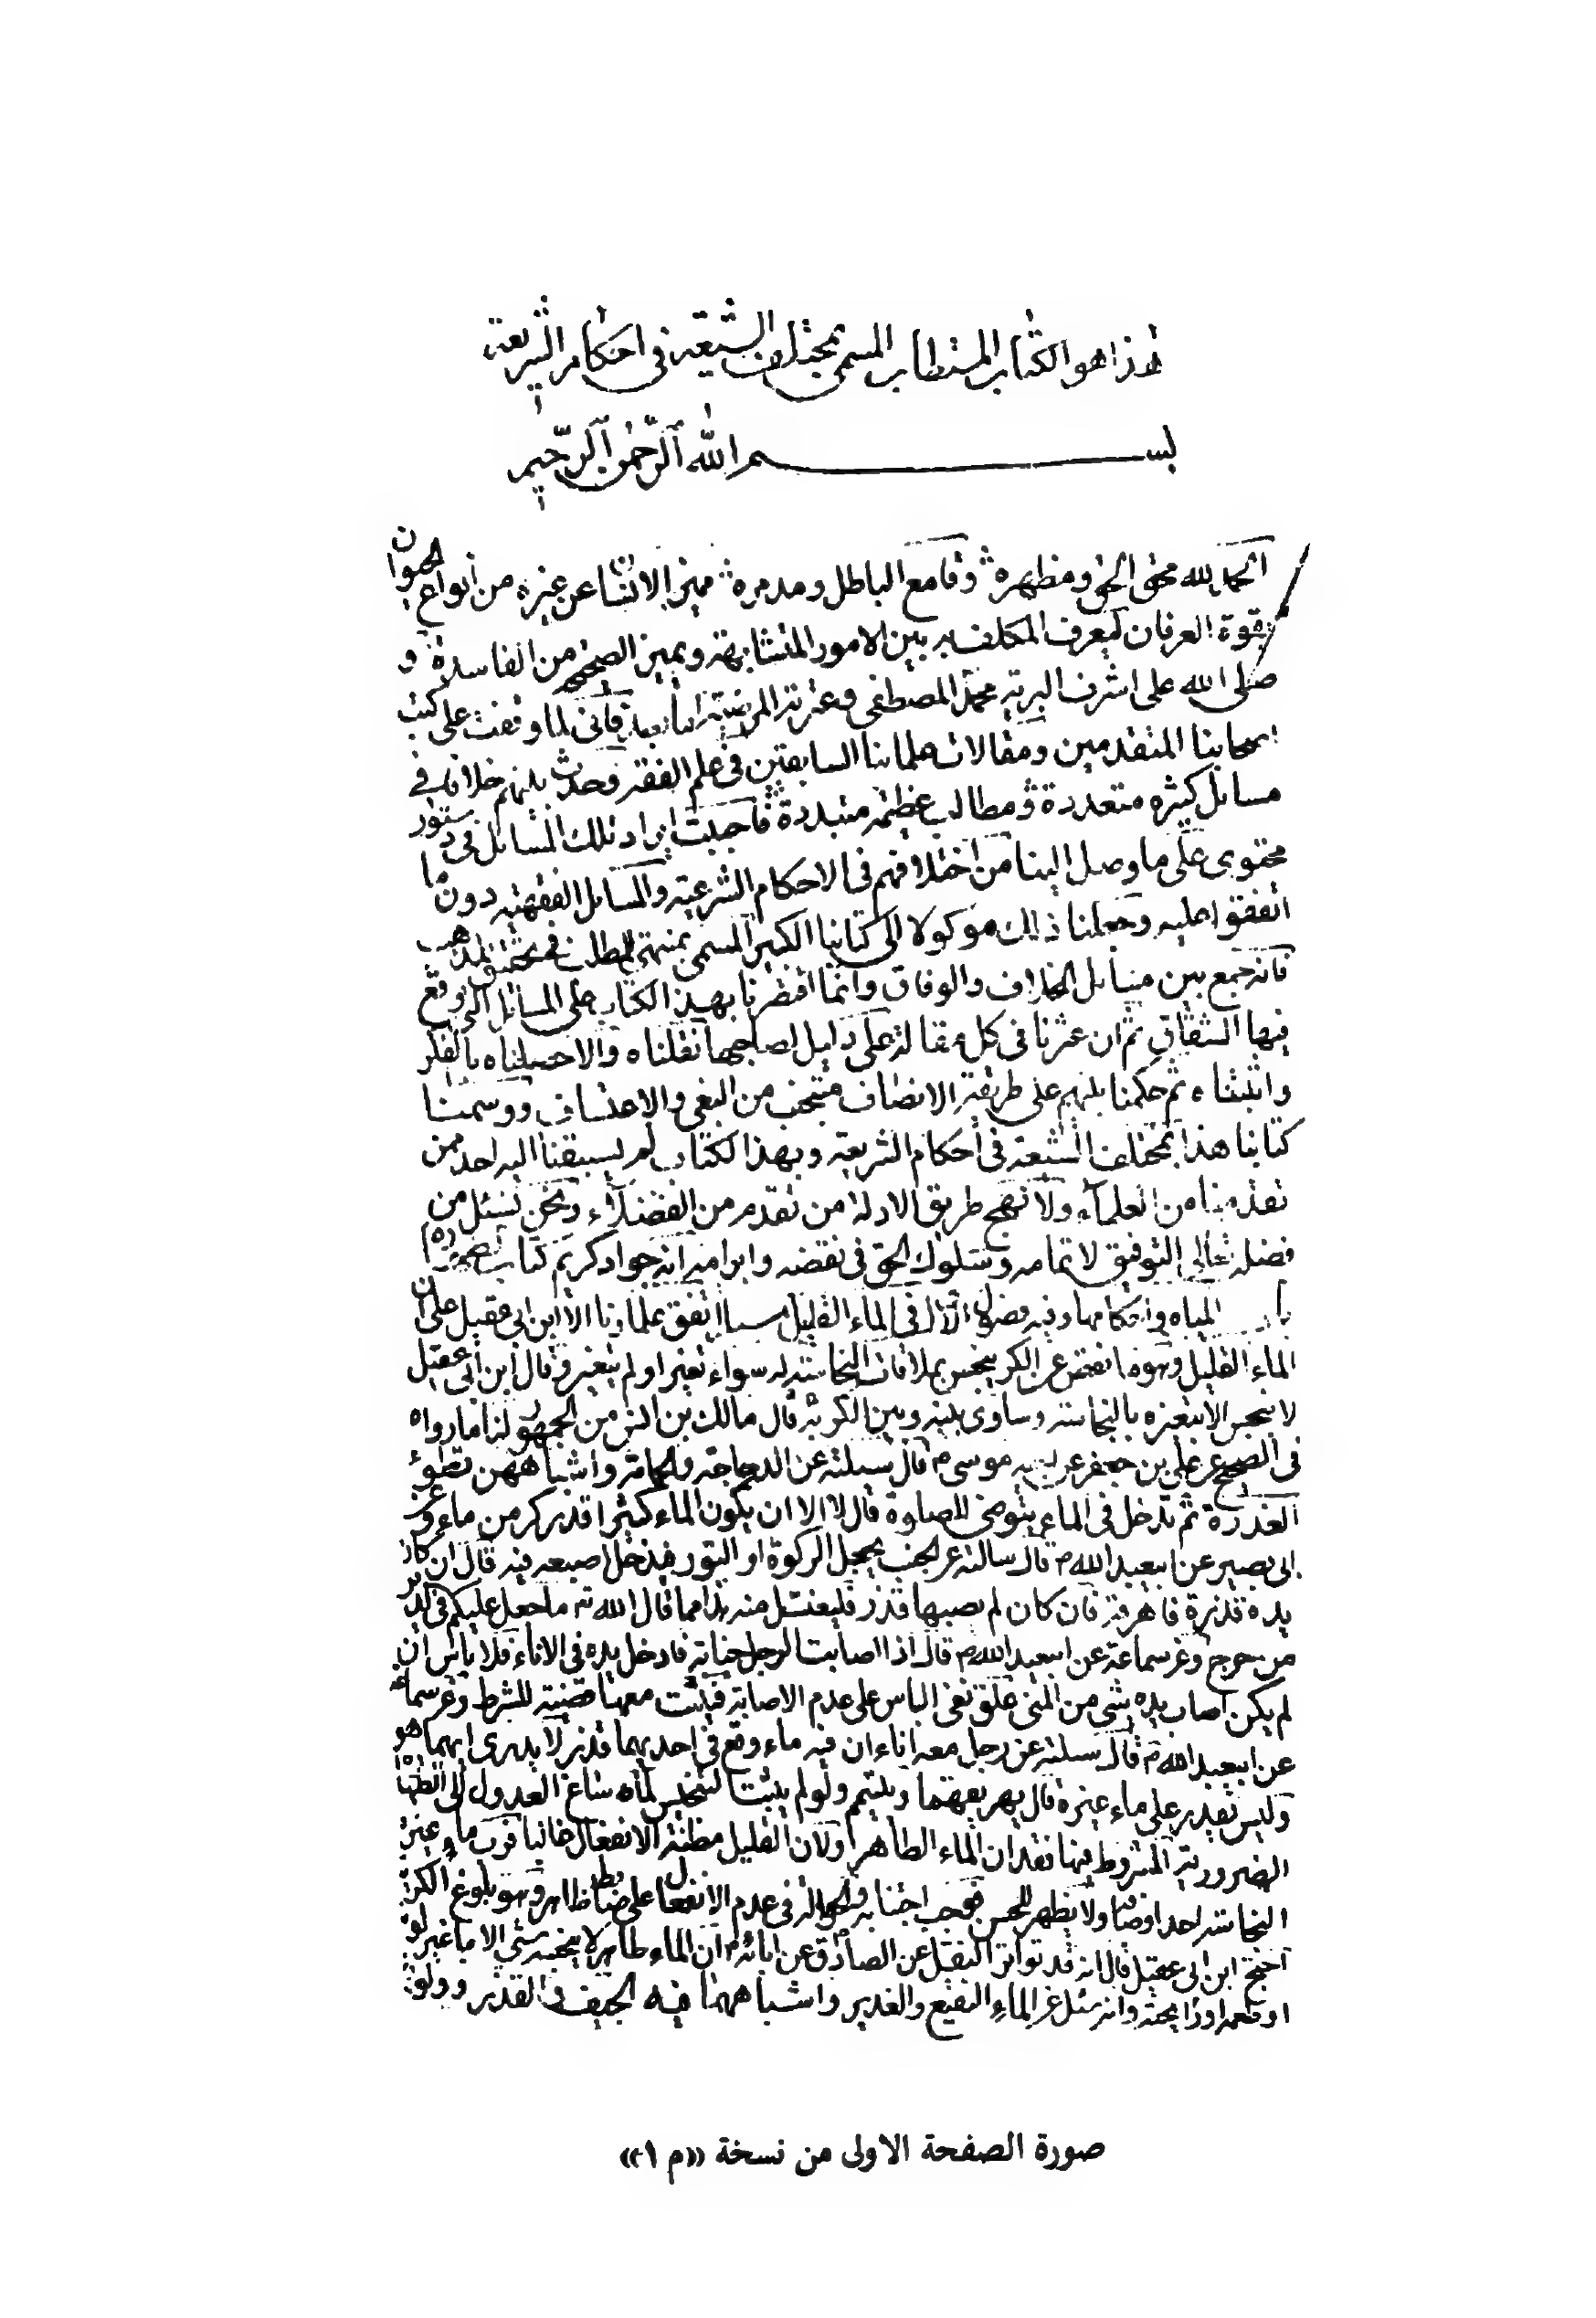 هذا هو الكتاب المستطاب المسمى بمختلف الشيعة في احكام الشريعة
بسم الله الرحمن الرحيم
الحمد لله محق الحق ومظهره وقامع الباطل ومدمره مميز الانسان عن غيره من أنواع الحيوان
بقوة العرفان ليعرف المكلف به بين الامور المتشابهة ويميز الصحيح من الفاسدة و
صلى الله على اشرف البرية محمد المصطفى وعترته المرضية اما بعد فانى لما وقفت على كتب
اصحابنا المتقدمين ومقالات علمائنا السابقين في علم الفقه وجدت بينهم خلافا في
مسائل كثيره متعددة ومطالب عظيمة متبددة فأحببت ايراد تلك المسائل في دستور
محتوى على ما وصل الينا من اختلافهم في الاحكام الشرعية والمسائل الفقهية دون ما
اتفقوا عليه وجعلنا ذلك موكولا الى كتابنا الكبير المسمى بمنتهى المطلب في تحقيق المذهب
فانه جمع بين مسائل الخلاف والوفاق وانما اقتصرنا بهذا الكتاب على المسائل التى وقع
فيها الشقاق ثم ان عثرنا فى كل مقالة على دليل لصاحبها نقلناه والا حصلناه بالفكر
واثبتناه ثم حكمنا بينهم على طريقة الانصاف متجنب من البغى والاعتساف ووسمنا
كتابنا هذا بمختلف الشيعة فى أحكام الشريعة وبهذا الكتاب لم يسبقنا اليه احد ممن
تقدمنا من العلماء ولا نهج طريق الادلة من تقدم من الفضلاء ونحن نسئل من
فضله تعالى التوفيق لاتمامه وسلوك الحق فى نقضه وابرامه انه جواد كريم كتاب الطهارة
باب المياه واحكامها وفيه فصول الأول فى الماء القليل مسألة اتفق علماؤنا الا ابن ابى عقيل على ان
الماء القليل وهو ما نقص عن الكر ينجس بملاقات النجاسة له سواء تغير او لم يتغير وقال ابن أبى عقيل
لا ينجس الا بتغيره بالنجاسة وساوى بينه وبين الكر وبه قال مالك بن انس من الجمهور لنا ما رواه
فى الصحيح عن على بن جعفر عن اخيه موسى م قال سئلته عن الدجاجة والحمامة واشباههن تطوء
العذرة ثم تدخل فى الماء يتوضى للصلوة قال لا الا ان يكون الماء كثيرا قدر كر من ماء وعن
ابى بصير عن ابيعبد الله م قال سالته عن الجنب يجعل الركوة او التور فيدخل اصبعه فيه قال ان كان
يده قذرة فاهرقه فان كان لم يصبها قذر فليغتسل منه هذا مما قال الله تم ما جعل عليكم فى الدين
من حرج وعن سماعة عن ابيعبد الله م قال اذا اصابت الرجل جنابة فادخل يده فى الاناء فلا باس ان
لم يكن اصاب يده شى من المنى علق نفى الباس على عدم الاصابة فيثبت معها قضية للشرط وعن سماعة
عن ابيعبد الله م قال سئلته عن رجل معه اناءان فيه ماء وقع فى احديهما قذر لا يدرى ايهما هو
وليس يقدر على ماء غيره قال يهريقهما ويتيمم ولو لم يثبت التنجيس لما ساغ العدول الى الطهارة
الضرورية المشروط فيها فقدان الماء الطاهر ولان القليل مظنة الانفعال غالبا فرب ماء غيرت
النجاسة احد اوصافه ولا يظهر للحس فوجب اجتنابه والحوالة فى عدم الانفعال على ضابط ظاهر وهو بلوغ الكرية
احتج ابن ابى عقيل قال انه قد تواتر النقل عن الصادق م عن ابائه م ان الماء طاهر لا ينجسه شئي الا ما غير لونه
او طعمه او رايحته وانه سئل عن الماء النقيع والغدير واشباههما فيه الجيف والقذر وولوغ
صورة الصفحة الاولى من نسخة «م ١»